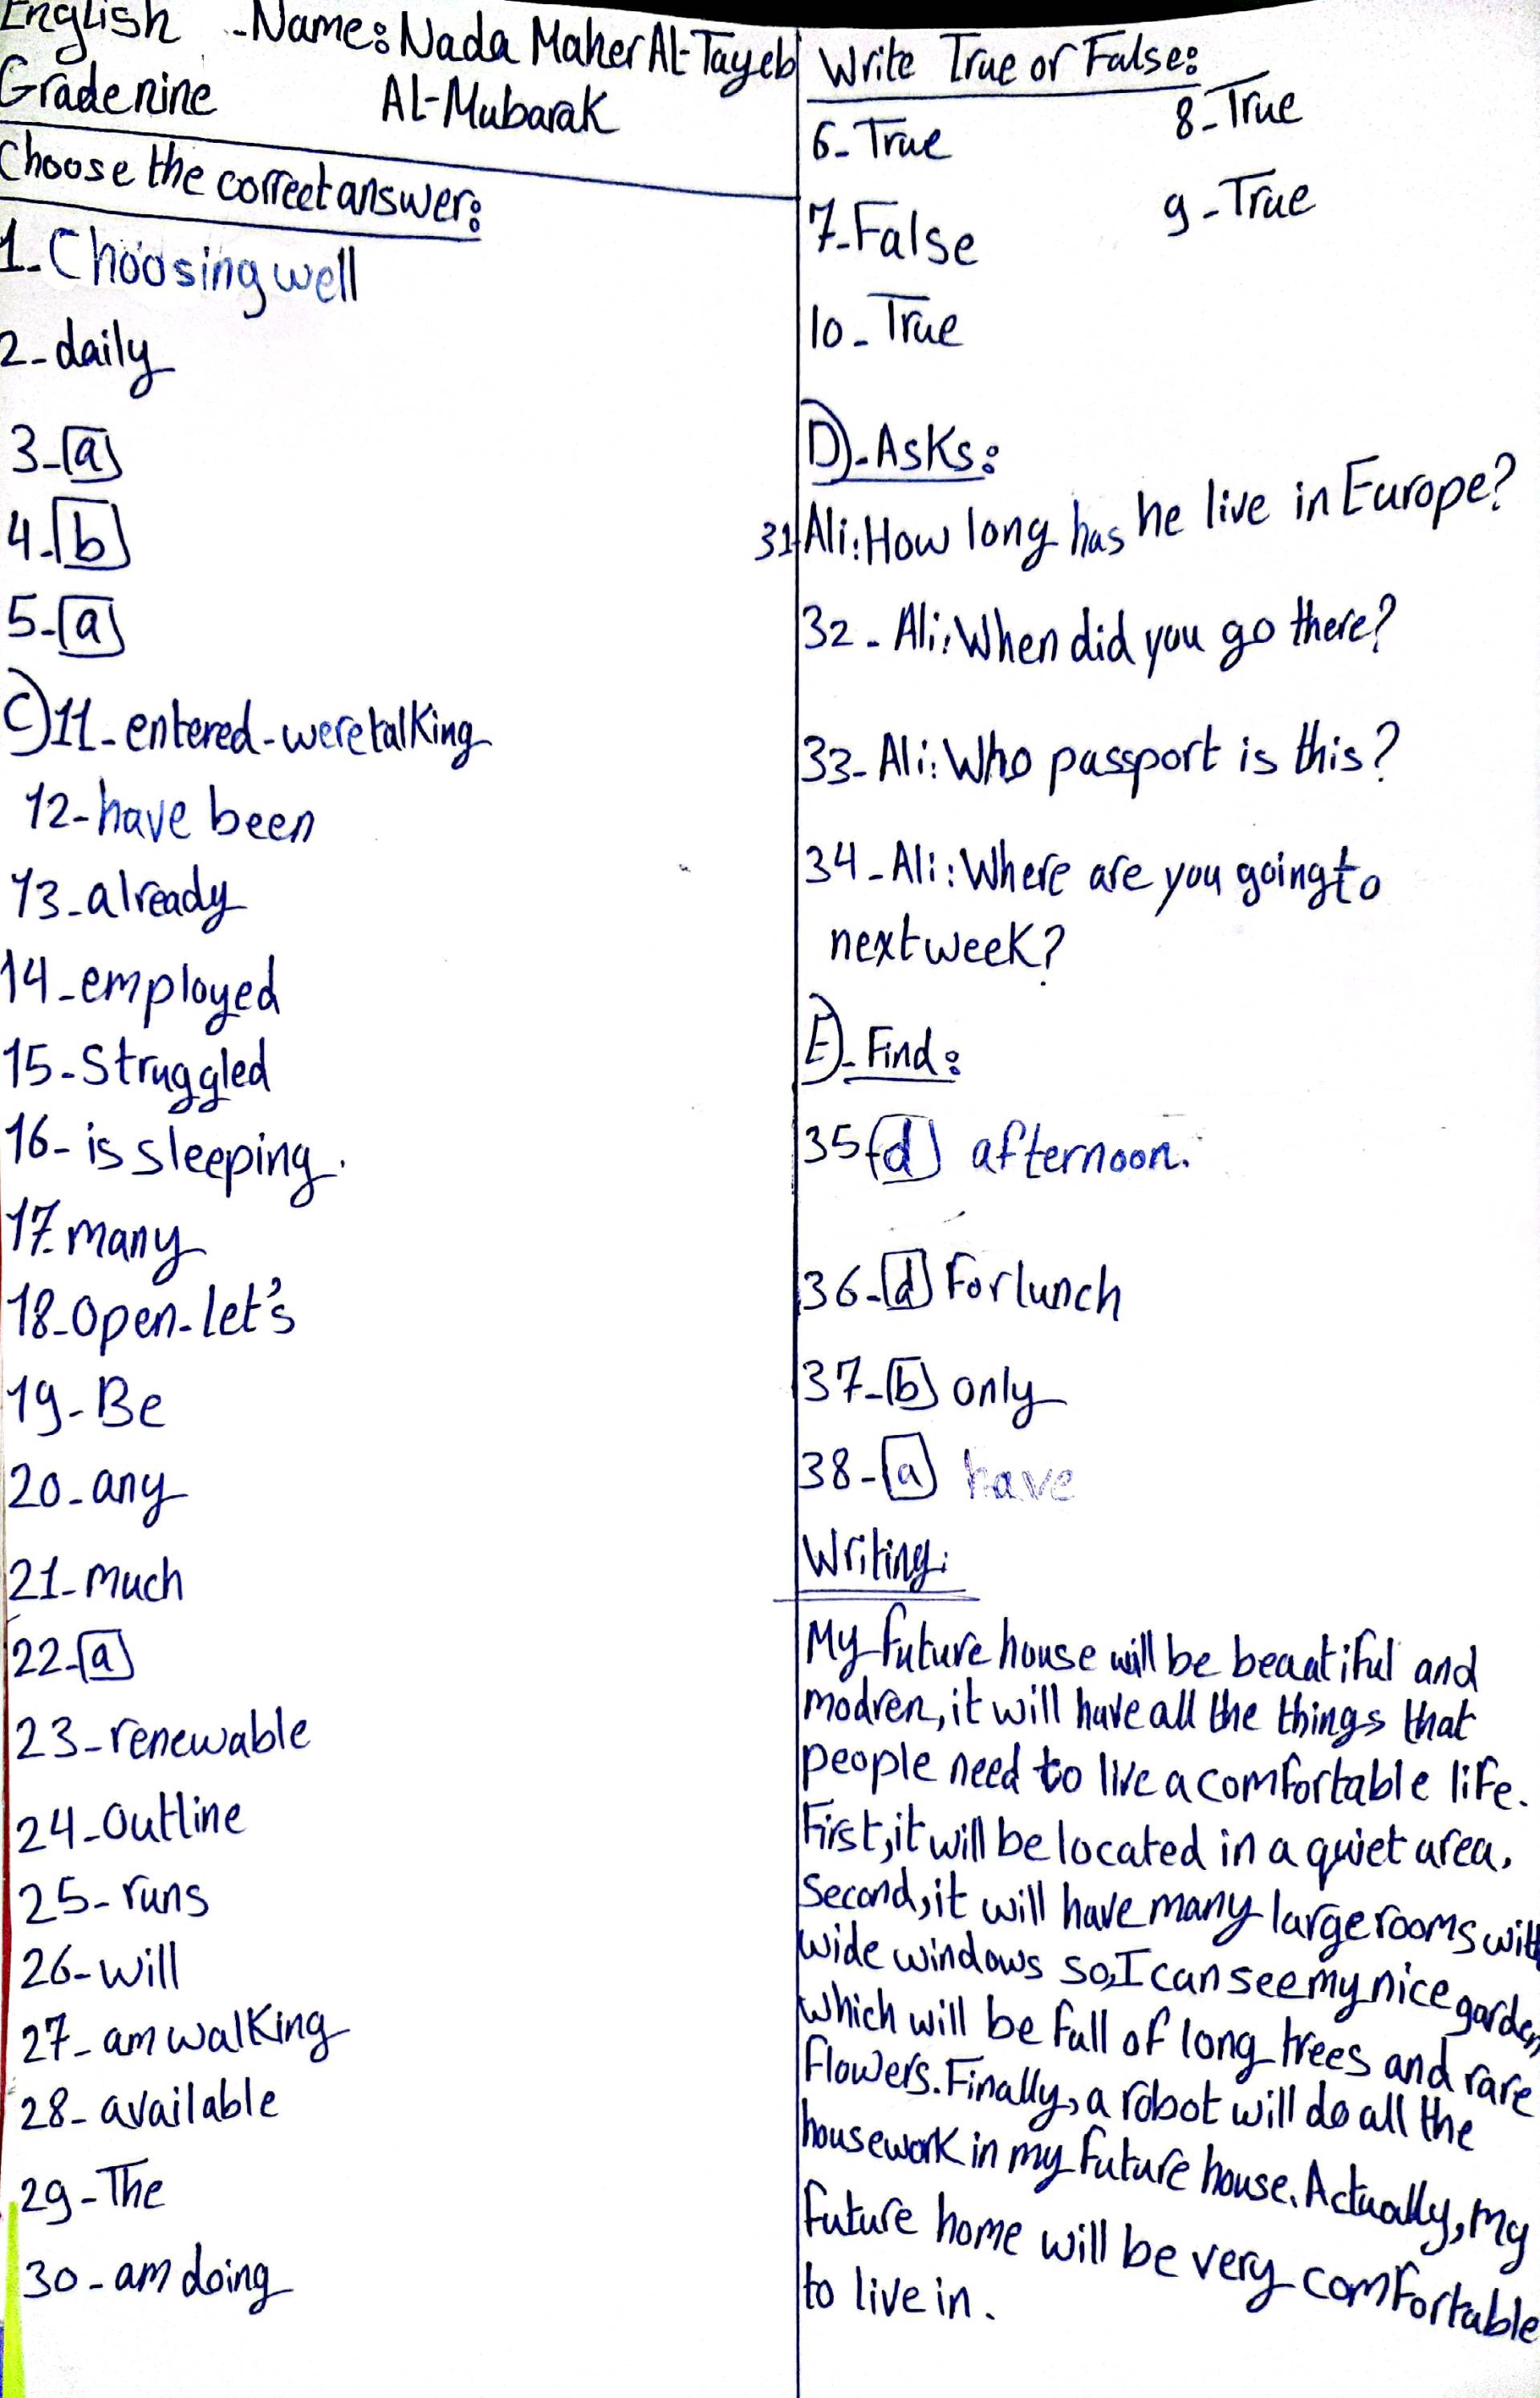 English - Name: Nada Maher Al-Tayeb
Grade nine Al-Mubarak
Choose the correct answer:
1- Choosing well
2- daily
3- a
4- b
5- a
C) 11- entered - were talking
12- have been
13- already
14- employed
15- Struggled
16- is sleeping.
17- many
18- Open - let's
19- Be
20- any
21- much
22- a
23- renewable
24- Outline
25- runs
26- will
27- am walking
28- available
29- The
30- am doing
Write True or False:
6- True 8- True
7- False 9- True
10- True
D)- Asks:
31 Ali: How long has he live in Europe?
32- Ali: When did you go there?
33- Ali: Who passport is this?
34- Ali: Where are you going to
next week?
E)- Find:
35- d afternoon.
36- d For lunch
37- b only
38- a have
Writing:
My future house will be beautiful and
modren, it will have all the things that
people need to live a comfortable life.
First, it will be located in a quiet area.
Second, it will have many large rooms with
wide windows so, I can see my nice garden,
which will be full of long trees and rare
flowers. Finally, a robot will do all the
housework in my future house. Actually, my
future home will be very comfortable
to live in.